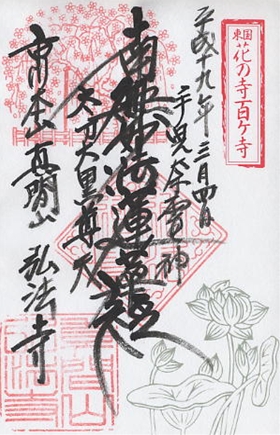 東国
花の寺百ヶ寺
平成十九年三月四日
手児奈霊神
南無妙法蓮華経
太刀大黒尊天
真間山 弘法寺